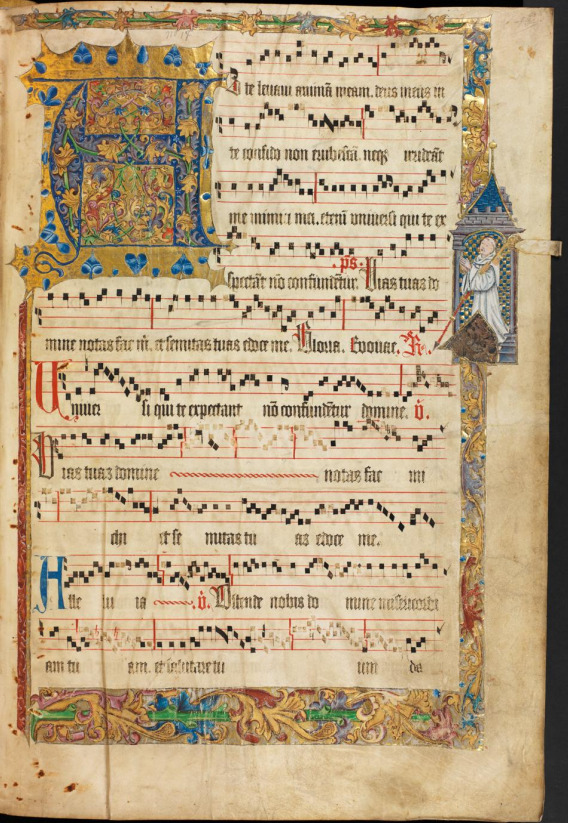 A D te levaui animā meam. deus meus in
te confido non erubescā. neqȝ irrideāt
me inimici mei. etenī vniuersi qui te ex
spectāt nō confundētur. ps. Vias tuas do
mine notas fac m̄. et semitas tuas edoce me. Gloria. Euouae. R.
Uniuer si qui te expectant nō confundētur domine. v̄.
Vias tuas domine notas fac mi
chi et se mitas tu as edoce me.
Alle lu ia v̄. Ostende nobis do mine misericordi
am tu am. et salutare tu um da